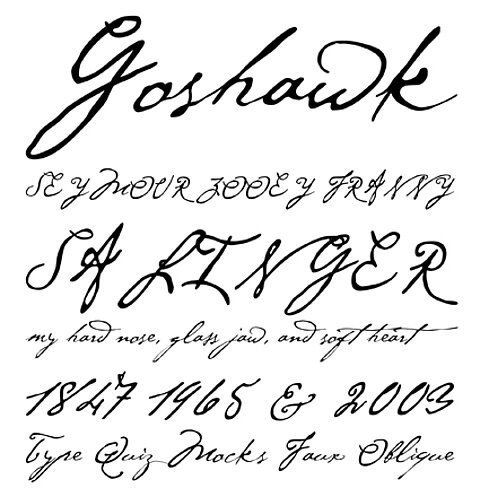 Goshawk
SEYMOUR ZOOEY FRANNY
SALINGER
my hard nose, glass jaw, and soft heart
1847 1965 & 2003
Type Quiz Mocks Faux Oblique